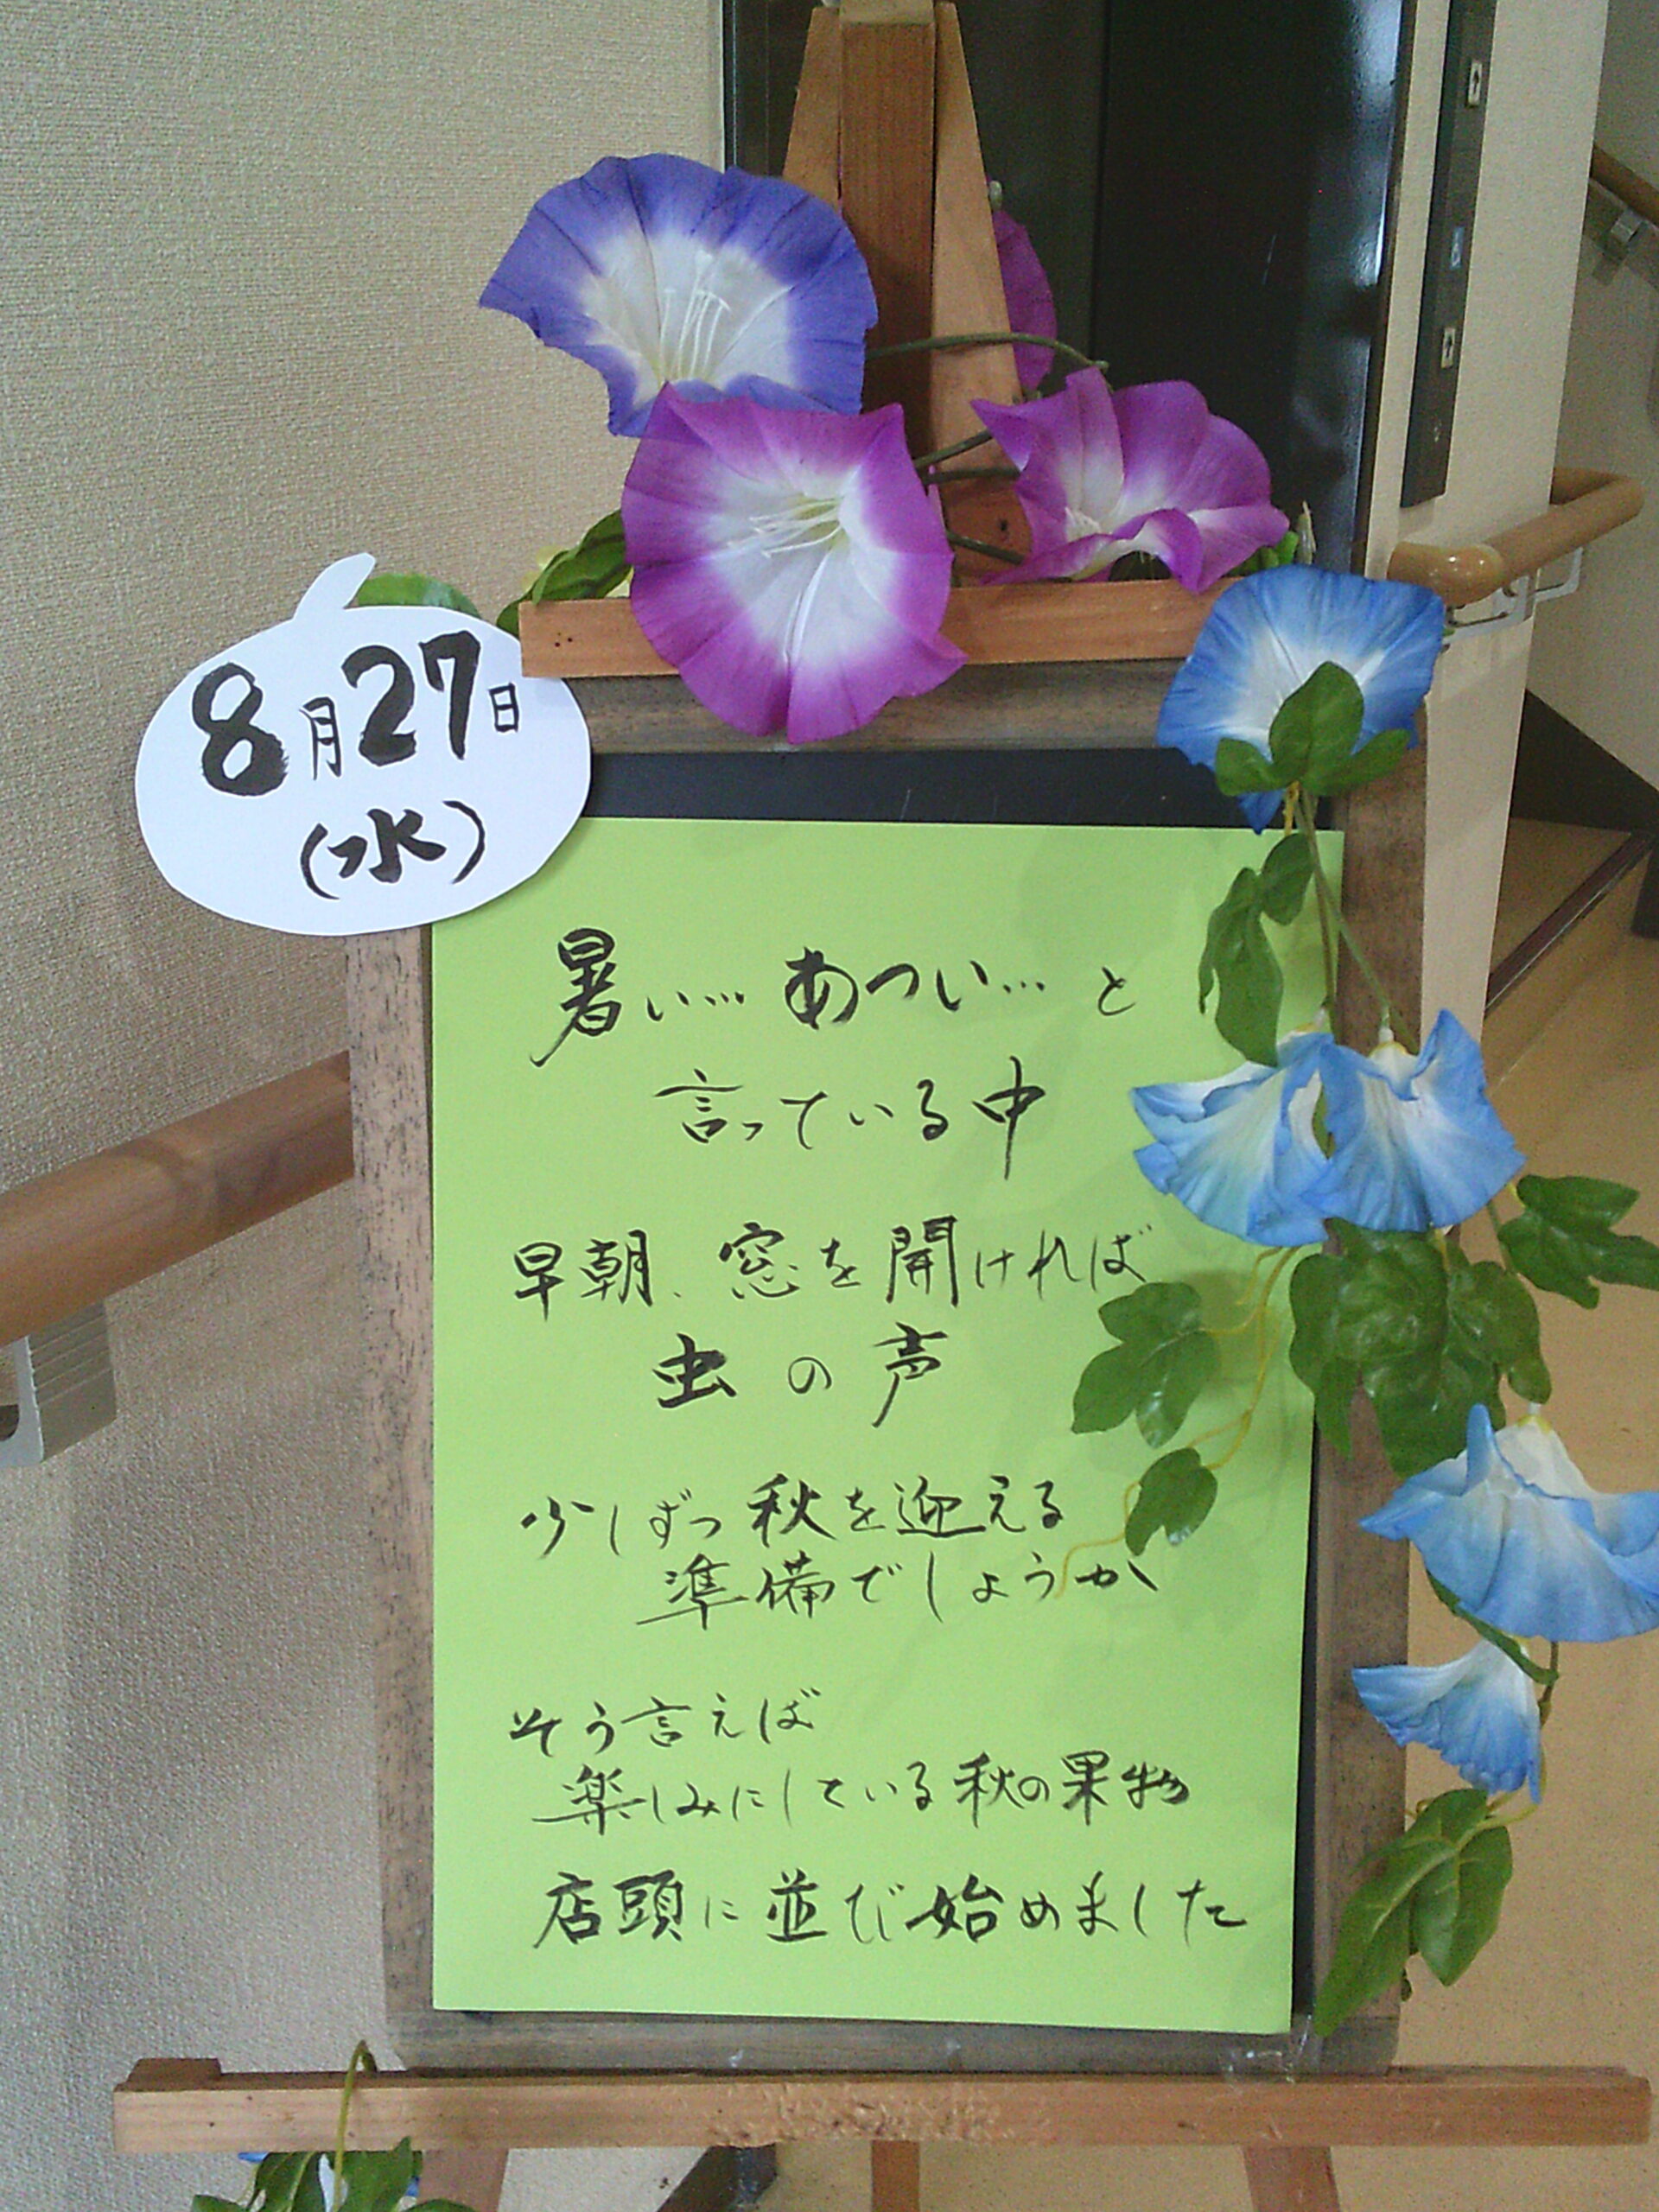 8月27日
(水)
暑い… あつい… と
言っている中
早朝、窓を開ければ
虫の声
少しずつ秋を迎える
準備でしょうか
そう言えば
楽しみにしている秋の果物
店頭に並び始めました